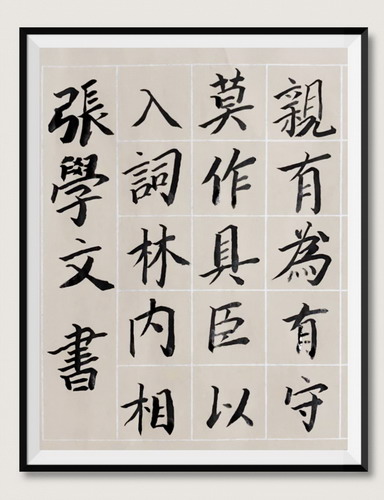 親有為有守
莫作具臣以
入詞林内相
張學文書